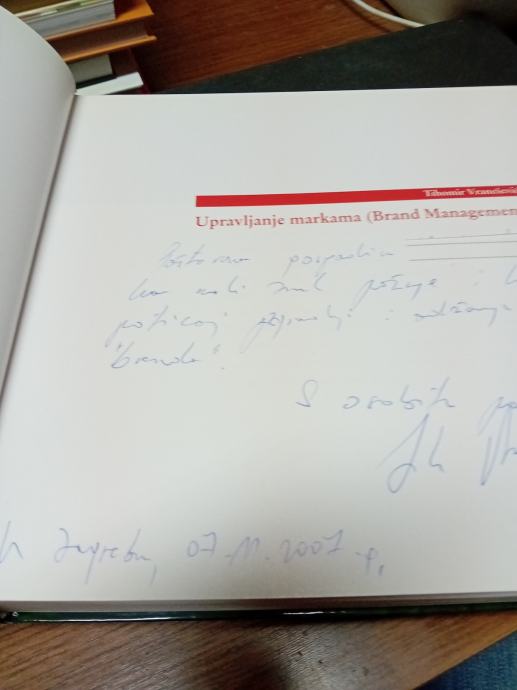 Tihomir Vranešević
Upravljanje markama (Brand Managemen
Poštovana gospođo
kao mali znak pažnje i
poticaj stvaranju i održanju
"branda".
S osobitim
U Zagrebu, 07.11.2007.